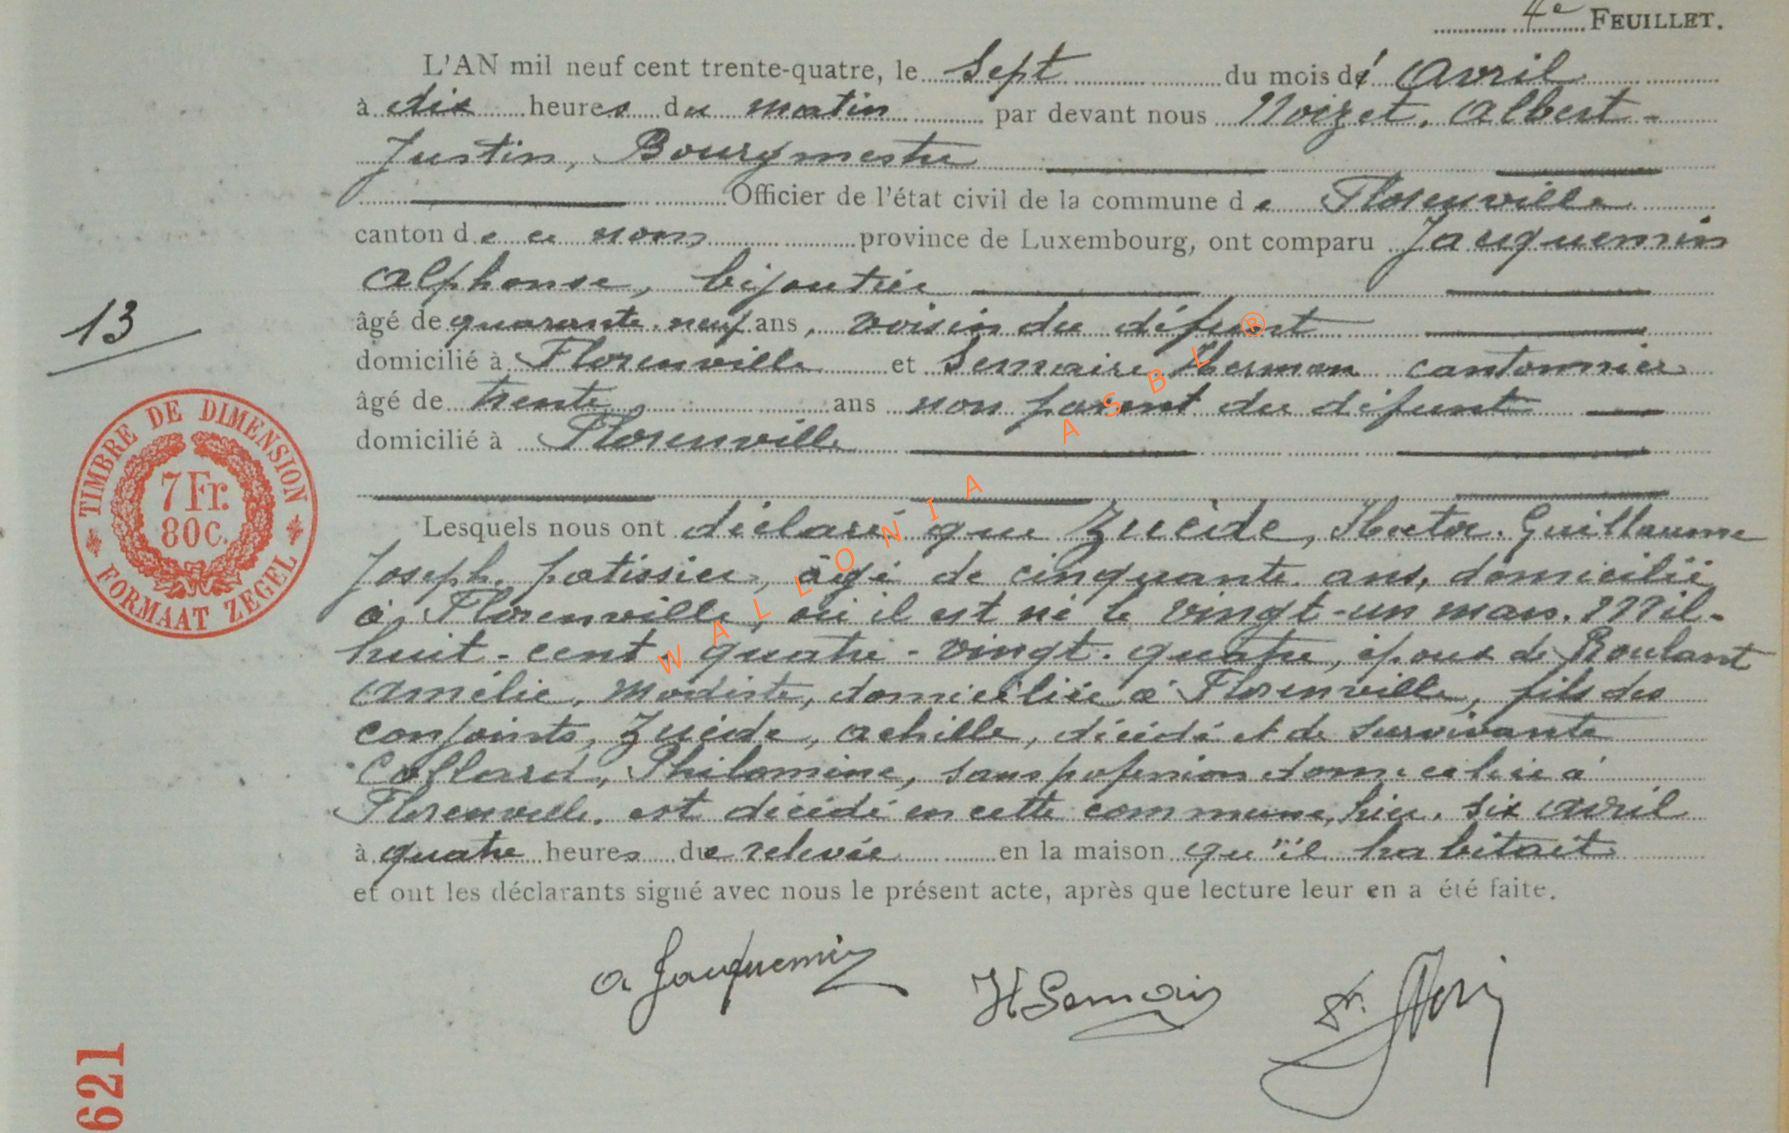 4e FEUILLET.
L'AN mil neuf cent trente-quatre, le Sept du mois d' Avril
à dix heures du matin par devant nous Noizet, Albert-
Justin, Bourgmestre
Officier de l'état civil de la commune de Florenville
canton de ce nom province de Luxembourg, ont comparu Jacquemin
Alphonse, bijoutier
13
âgé de quarante-neuf ans, voisin du défunt
domicilié à Florenville et Semaire Herman cantonnier
âgé de trente ans non parent du défunt
domicilié à Florenville
TIMBRE DE DIMENSION
7 Fr.
80 c.
FORMAAT ZEGEL
Lesquels nous ont déclaré que Zuède, Hector-Guillaume
Joseph, patissier, âgé de cinquante ans, domicilié
à Florenville, où il est né le vingt-un mars Mil-
huit-cent-quatre-vingt-quatre, époux de Roulant
Amélie, Modiste, domiciliée à Florenville, fils des
conjoints, Zuède, Achille, décédé et de survivante
Collard, Philomène, sans profession domiciliée à
Florenville, est décédé en cette commune, hier, six avril
à quatre heures de relevée en la maison qu'il habitait
et ont les déclarants signé avec nous le présent acte, après que lecture leur en a été faite.
a Jacquemin
H Semaire
621
WALLONIA ASBL ®